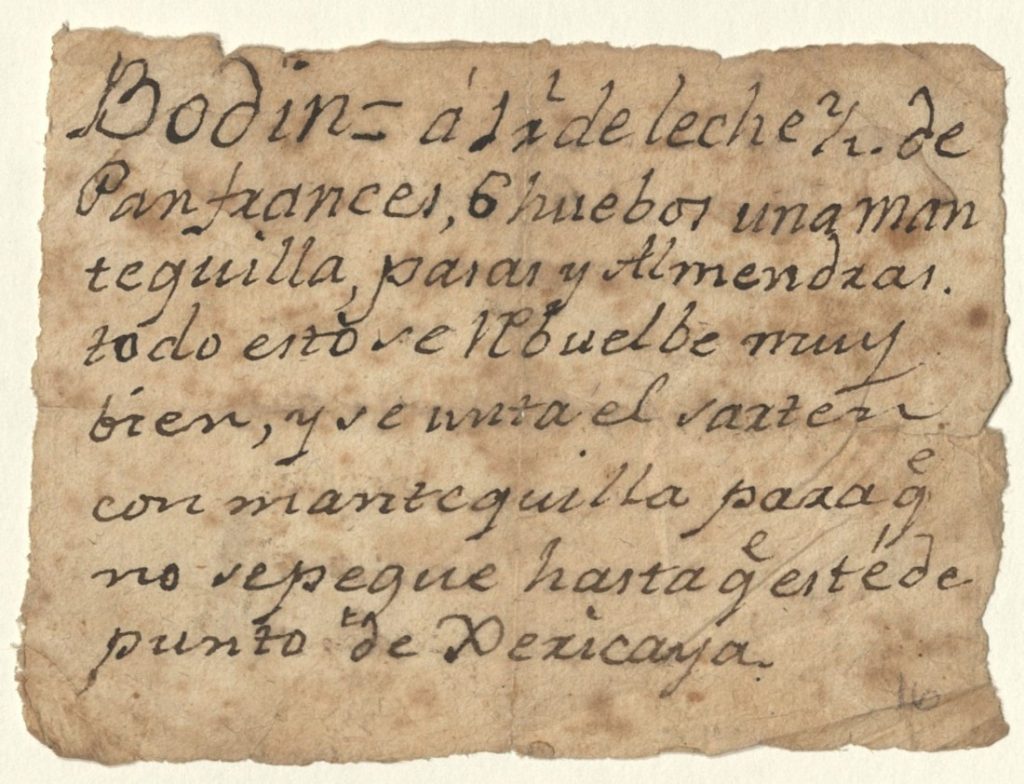 Bodin = á 1 rl de leche 1/2. de
Pan frances, 6 huebos una man
tequilla, pasas y Almendras.
todo esto se rebuelbe muy
bien, y se unta el sarten
con mantequilla para qe
no se pegue hasta qe esté de
punto de Xericaya.
16